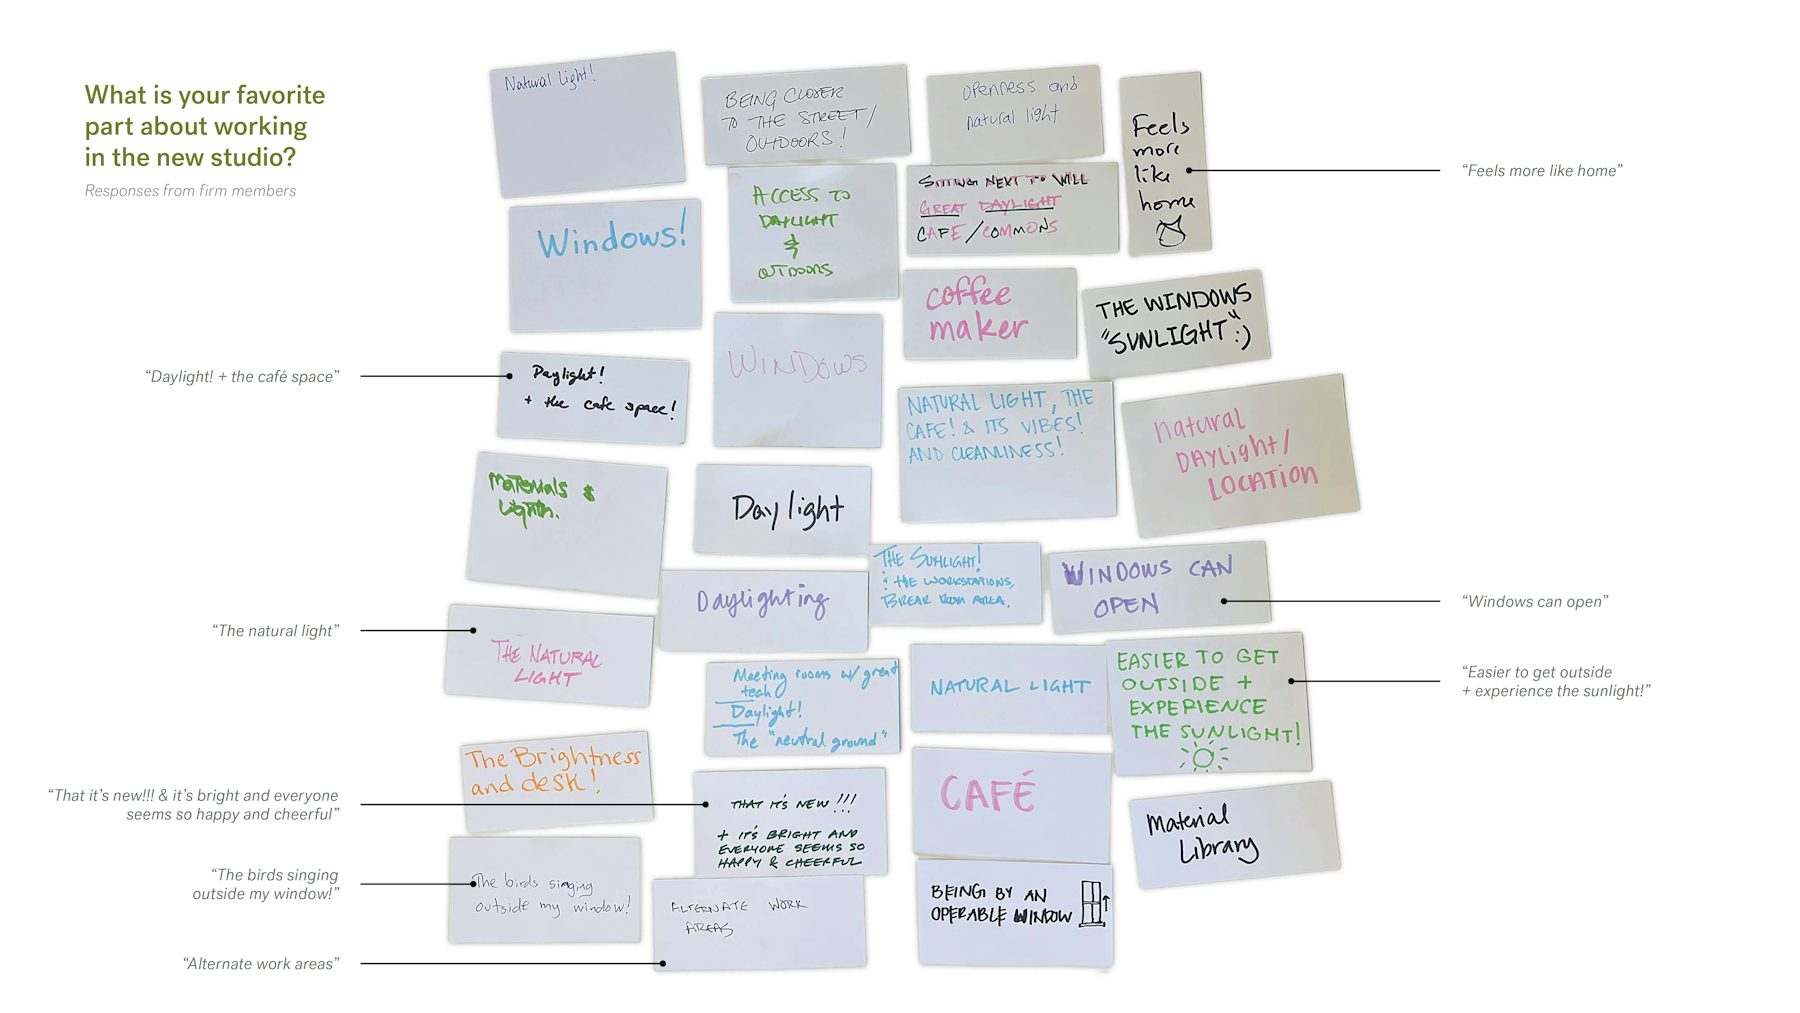 What is your favorite
part about working
in the new studio?
Responses from firm members
Natural Light!
BEING CLOSER
TO THE STREET/
OUTDOORS!
openness and
natural light
Feels
more
like
home
"Feels more like home"
Windows!
ACCESS TO
DAYLIGHT
&
OUTDOORS
SITTING NEXT TO WILL
GREAT DAYLIGHT
CAFE/COMMONS
coffee
maker
THE WINDOWS
"SUNLIGHT" :)
"Daylight! + the café space"
Daylight!
+ the cafe space!
WINDOWS
NATURAL LIGHT, THE
CAFE! & ITS VIBES!
AND CLEANLINESS!
Natural
DAYLIGHT/
LOCATION
Materials &
Daylight
THE SUNLIGHT!
& THE WORKSTATIONS,
BREAK ROOM AREA.
WINDOWS CAN
OPEN
"Windows can open"
Daylighting
"The natural light"
THE NATURAL
LIGHT
Meeting rooms w/ great
tech
Daylight!
The "neutral ground"
NATURAL LIGHT
EASIER TO GET
OUTSIDE +
EXPERIENCE
THE SUNLIGHT!
"Easier to get outside
+ experience the sunlight!"
The Brightness
and desk!
"That it's new!!! & it's bright and everyone
seems so happy and cheerful"
THAT IT'S NEW!!!
+ IT'S BRIGHT AND
EVERYONE SEEMS SO
HAPPY & CHEERFUL
CAFÉ
Material
Library
"The birds singing
outside my window!"
The birds singing
outside my window!
ALTERNATE WORK
AREAS
BEING BY AN
OPERABLE WINDOW
"Alternate work areas"